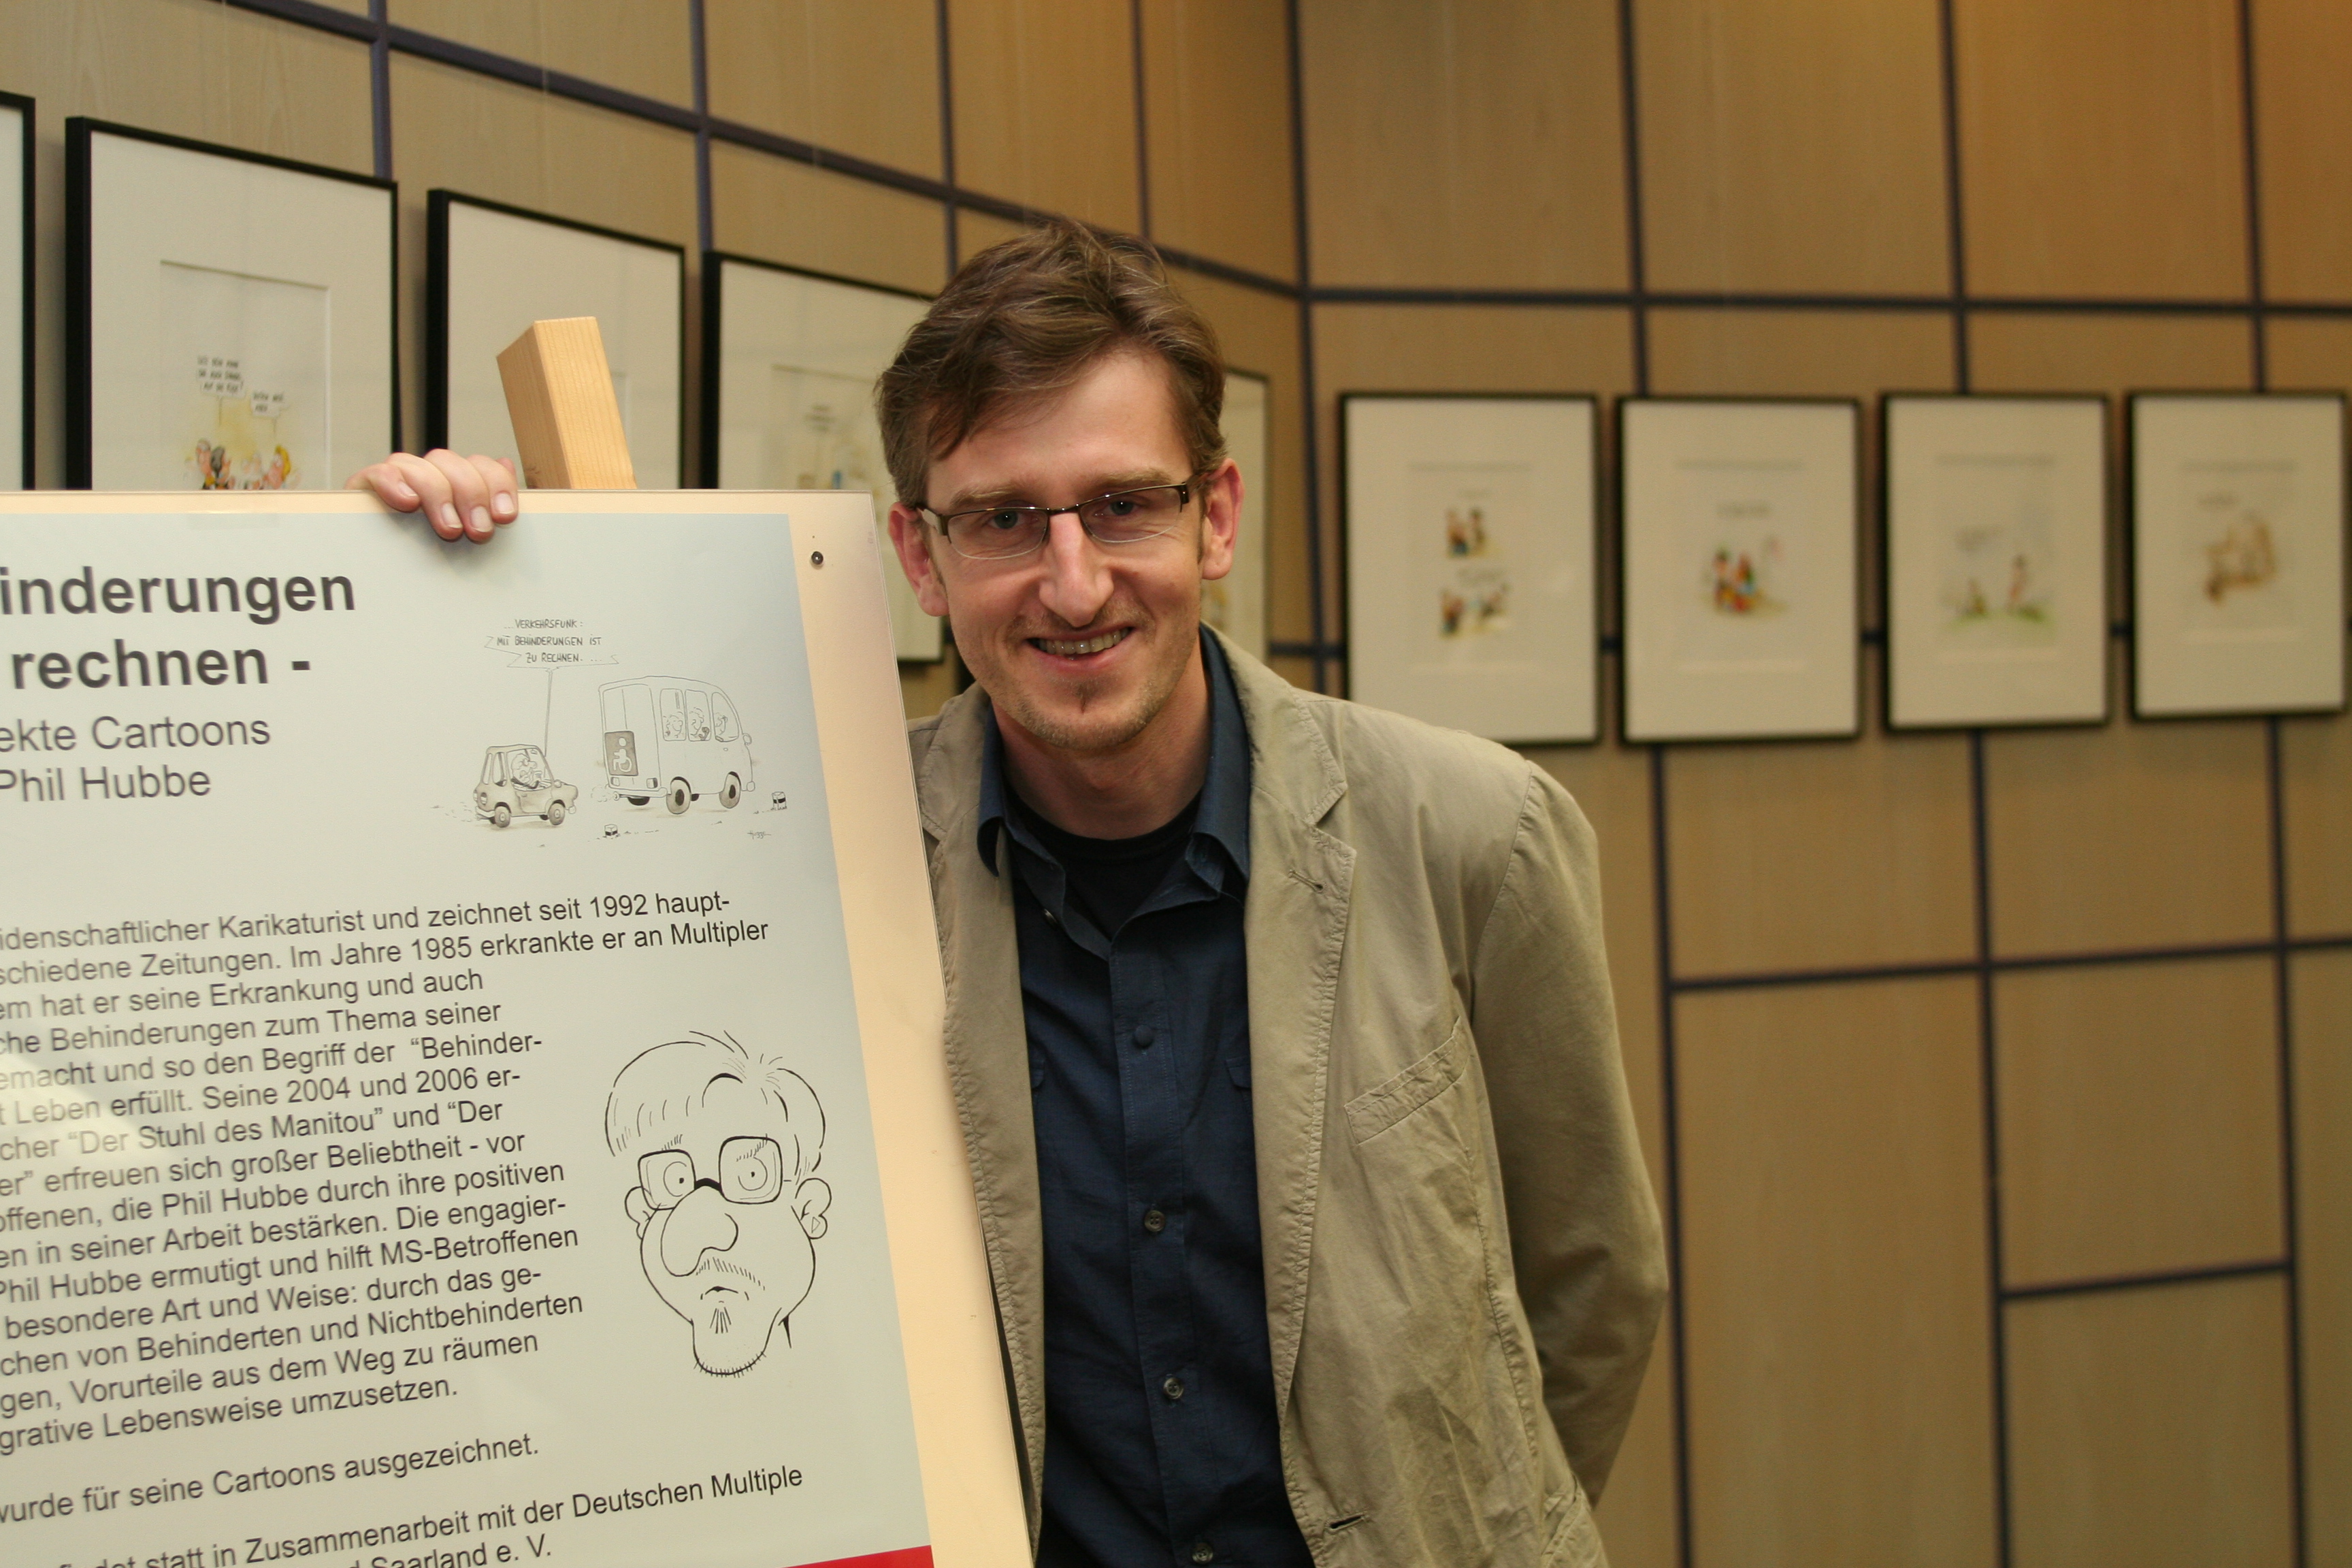 inderungen
rechnen -
ekte Cartoons
Phil Hubbe
... VERKEHRSFUNK:
MIT BEHINDERUNGEN IST
ZU RECHNEN. ...
idenschaftlicher Karikaturist und zeichnet seit 1992 haupt-
schiedene Zeitungen. Im Jahre 1985 erkrankte er an Multipler
em hat er seine Erkrankung und auch
che Behinderungen zum Thema seiner
emacht und so den Begriff der “Behinder-
t Leben erfüllt. Seine 2004 und 2006 er-
cher “Der Stuhl des Manitou” und “Der
er” erfreuen sich großer Beliebtheit - vor
offenen, die Phil Hubbe durch ihre positiven
en in seiner Arbeit bestärken. Die engagier-
Phil Hubbe ermutigt und hilft MS-Betroffenen
besondere Art und Weise: durch das ge-
chen von Behinderten und Nichtbehinderten
gen, Vorurteile aus dem Weg zu räumen
grative Lebensweise umzusetzen.
wurde für seine Cartoons ausgezeichnet.
findet statt in Zusammenarbeit mit der Deutschen Multiple
d Saarland e. V.